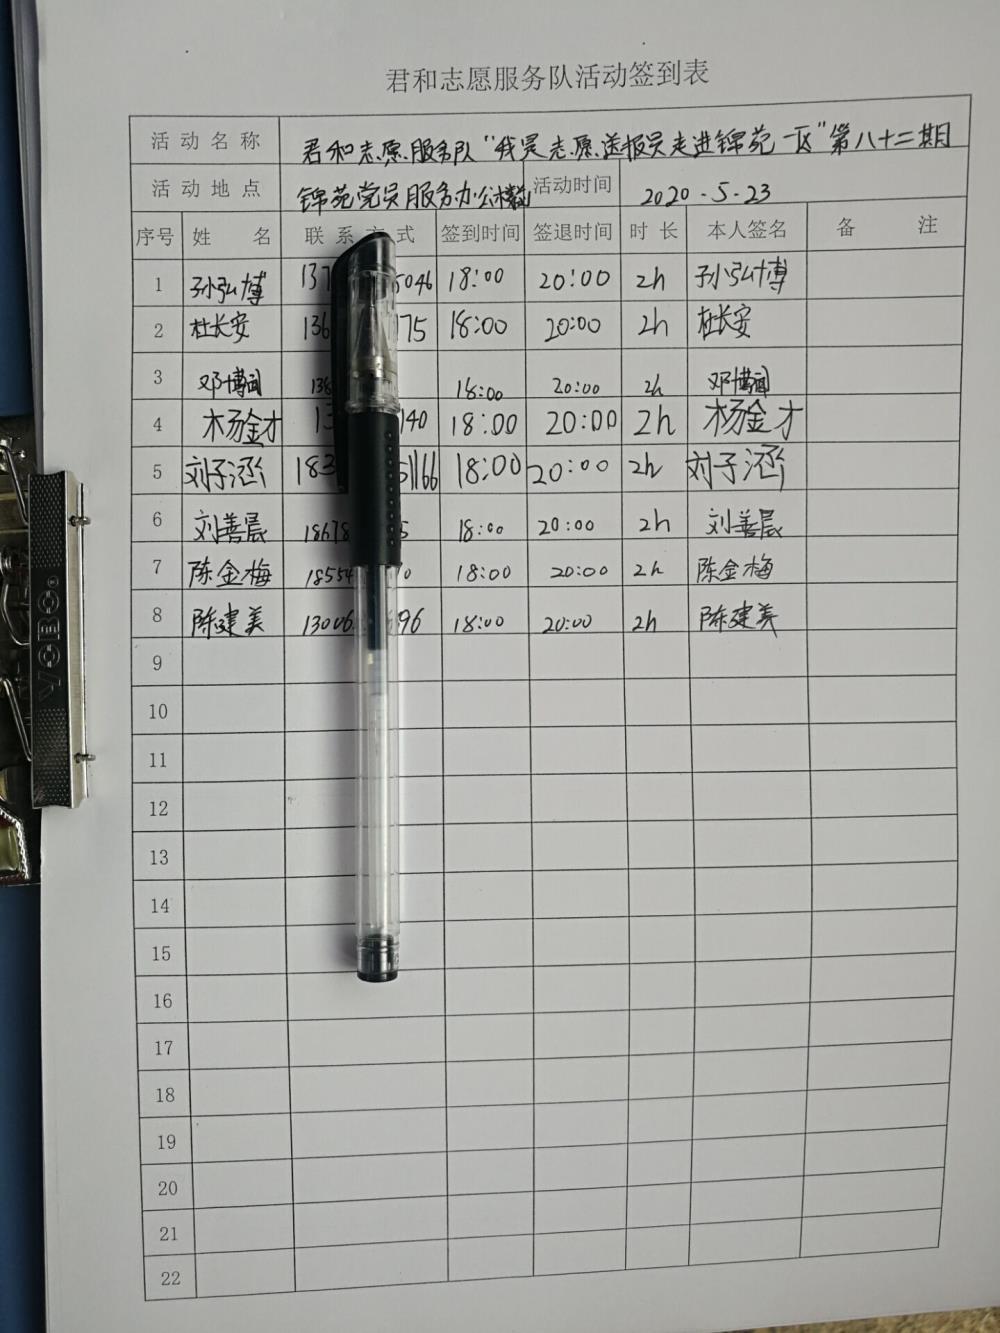 君和志愿服务队活动签到表
活动名称 君和志愿服务队“我是志愿送报员走进锦苑一区”第八十二期
活动地点 锦苑党员服务办公楼 活动时间 2020.5.23
序号 姓名 联系方式 签到时间 签退时间 时长 本人签名 备注
1 孙弘博 137 5046 18:00 20:00 2h 孙弘博
2 杜长安 136 175 18:00 20:00 2h 杜长安
3 邓博闻 138 18:00 20:00 2h 邓博闻
4 杨金才 13 140 18:00 20:00 2h 杨金才
5 刘子涵 183 5166 18:00 20:00 2h 刘子涵
6 刘善晨 18678 5 18:00 20:00 2h 刘善晨
7 陈金梅 18554 0 18:00 20:00 2h 陈金梅
8 陈建美 13006 696 18:00 20:00 2h 陈建美
9
10
11
12
13
14
15
16
17
18
19
20
21
22
VOBO